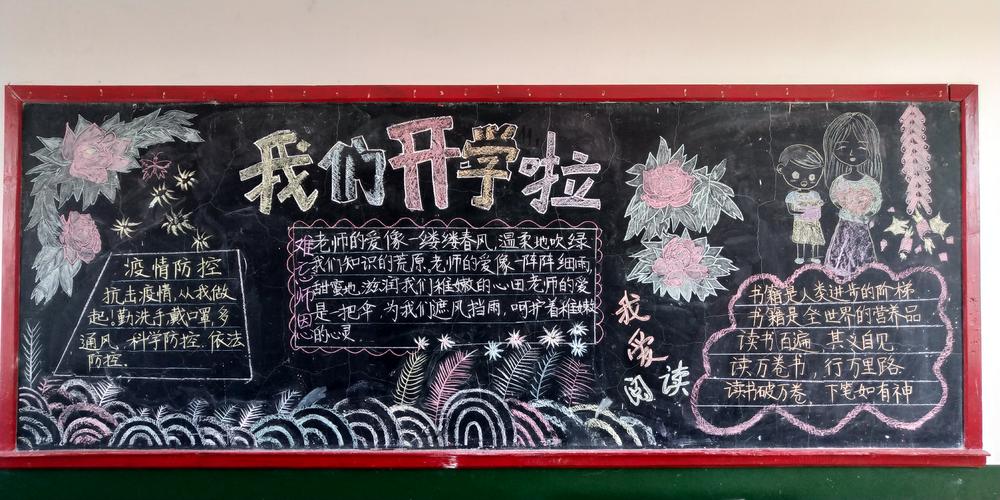 我们开学啦
疫情防控
抗击疫情,从我做
起!勤洗手戴口罩,多
通风、科学防控.依法
防控.
难忘师恩
老师的爱像一缕缕春风,温柔地吹绿
我们知识的荒原,老师的爱像一阵阵细雨,
甜蜜地滋润我们稚嫩的心田老师的爱
是一把伞.为我们遮风挡雨,呵护着稚嫩
的心灵.
我爱阅读
书籍是人类进步的阶梯
书籍是全世界的营养品
读书百遍、其义自见
读万卷书,行万里路
读书破万卷,下笔如有神